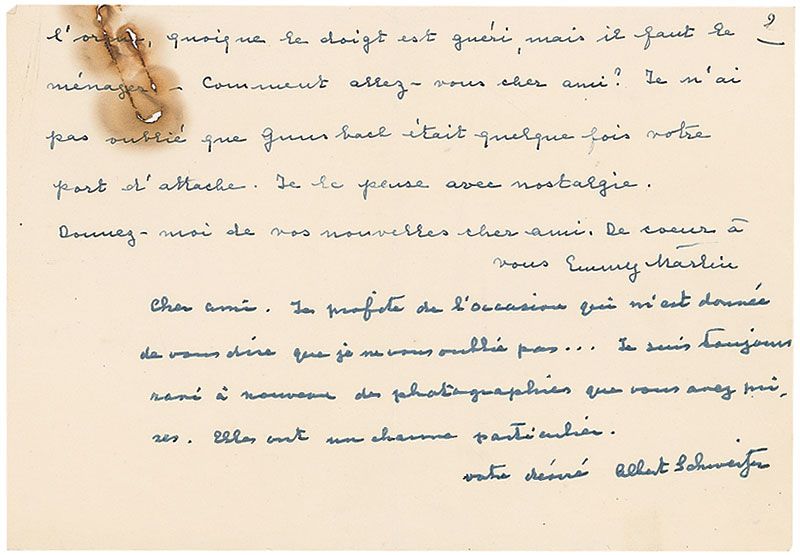 2
l'orgue, quoique le doigt est guéri, mais il faut le
ménager – Comment allez-vous cher ami? Je n'ai
pas oublié que Gunsbach était quelque fois votre
port d'attache. Je le pense avec nostalgie.
Donnez-moi de vos nouvelles cher ami. De coeur à
vous Emmy Martin
Cher ami. Je profite de l'occasion qui m'est donnée
de vous dire que je ne vous oublié pas... Je suis toujours
ravi à nouveau des photographies que vous avez pri-
ses. Elles ont un charme particulier.
votre dévoué Albert Schweitzer